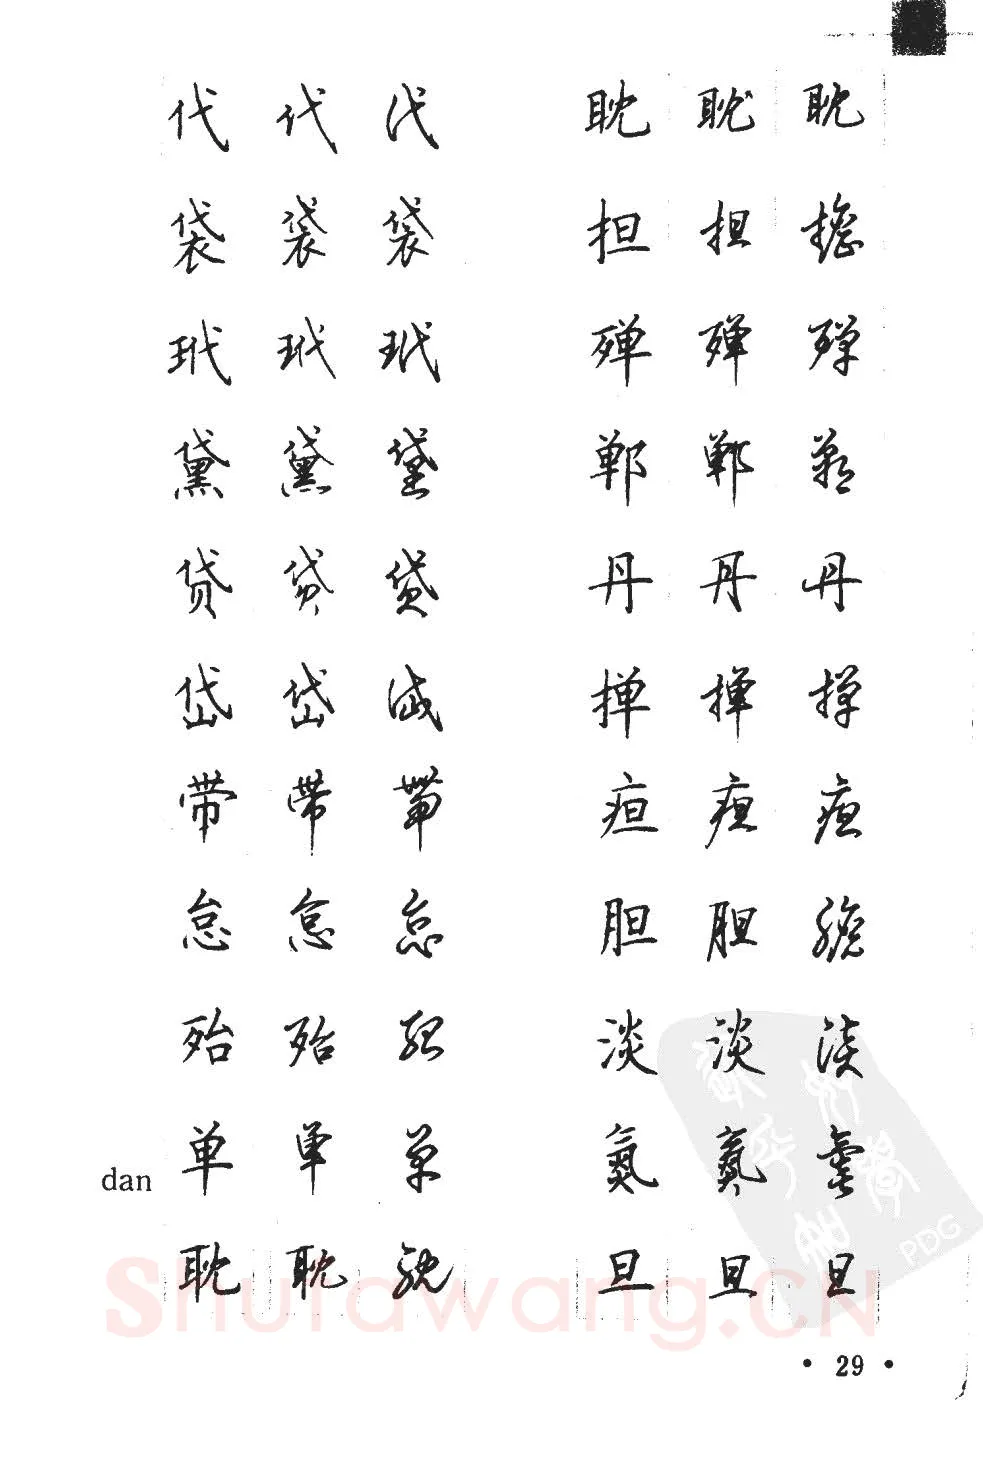 代 代 代 耽 耽 耽
袋 袋 袋 担 担 擔
玳 玳 玳 殚 殚 殚
黛 黛 黛 郸 郸 郸
贷 贷 贷 丹 丹 丹
岱 岱 岱 掸 掸 掸
带 带 带 疸 疸 疸
怠 怠 怠 胆 胆 膽
殆 殆 殆 淡 淡 淡
dan 单 单 单 氮 氮 氮
耽 耽 耽 旦 旦 旦
Shufawang.CN
PDG
• 29 •